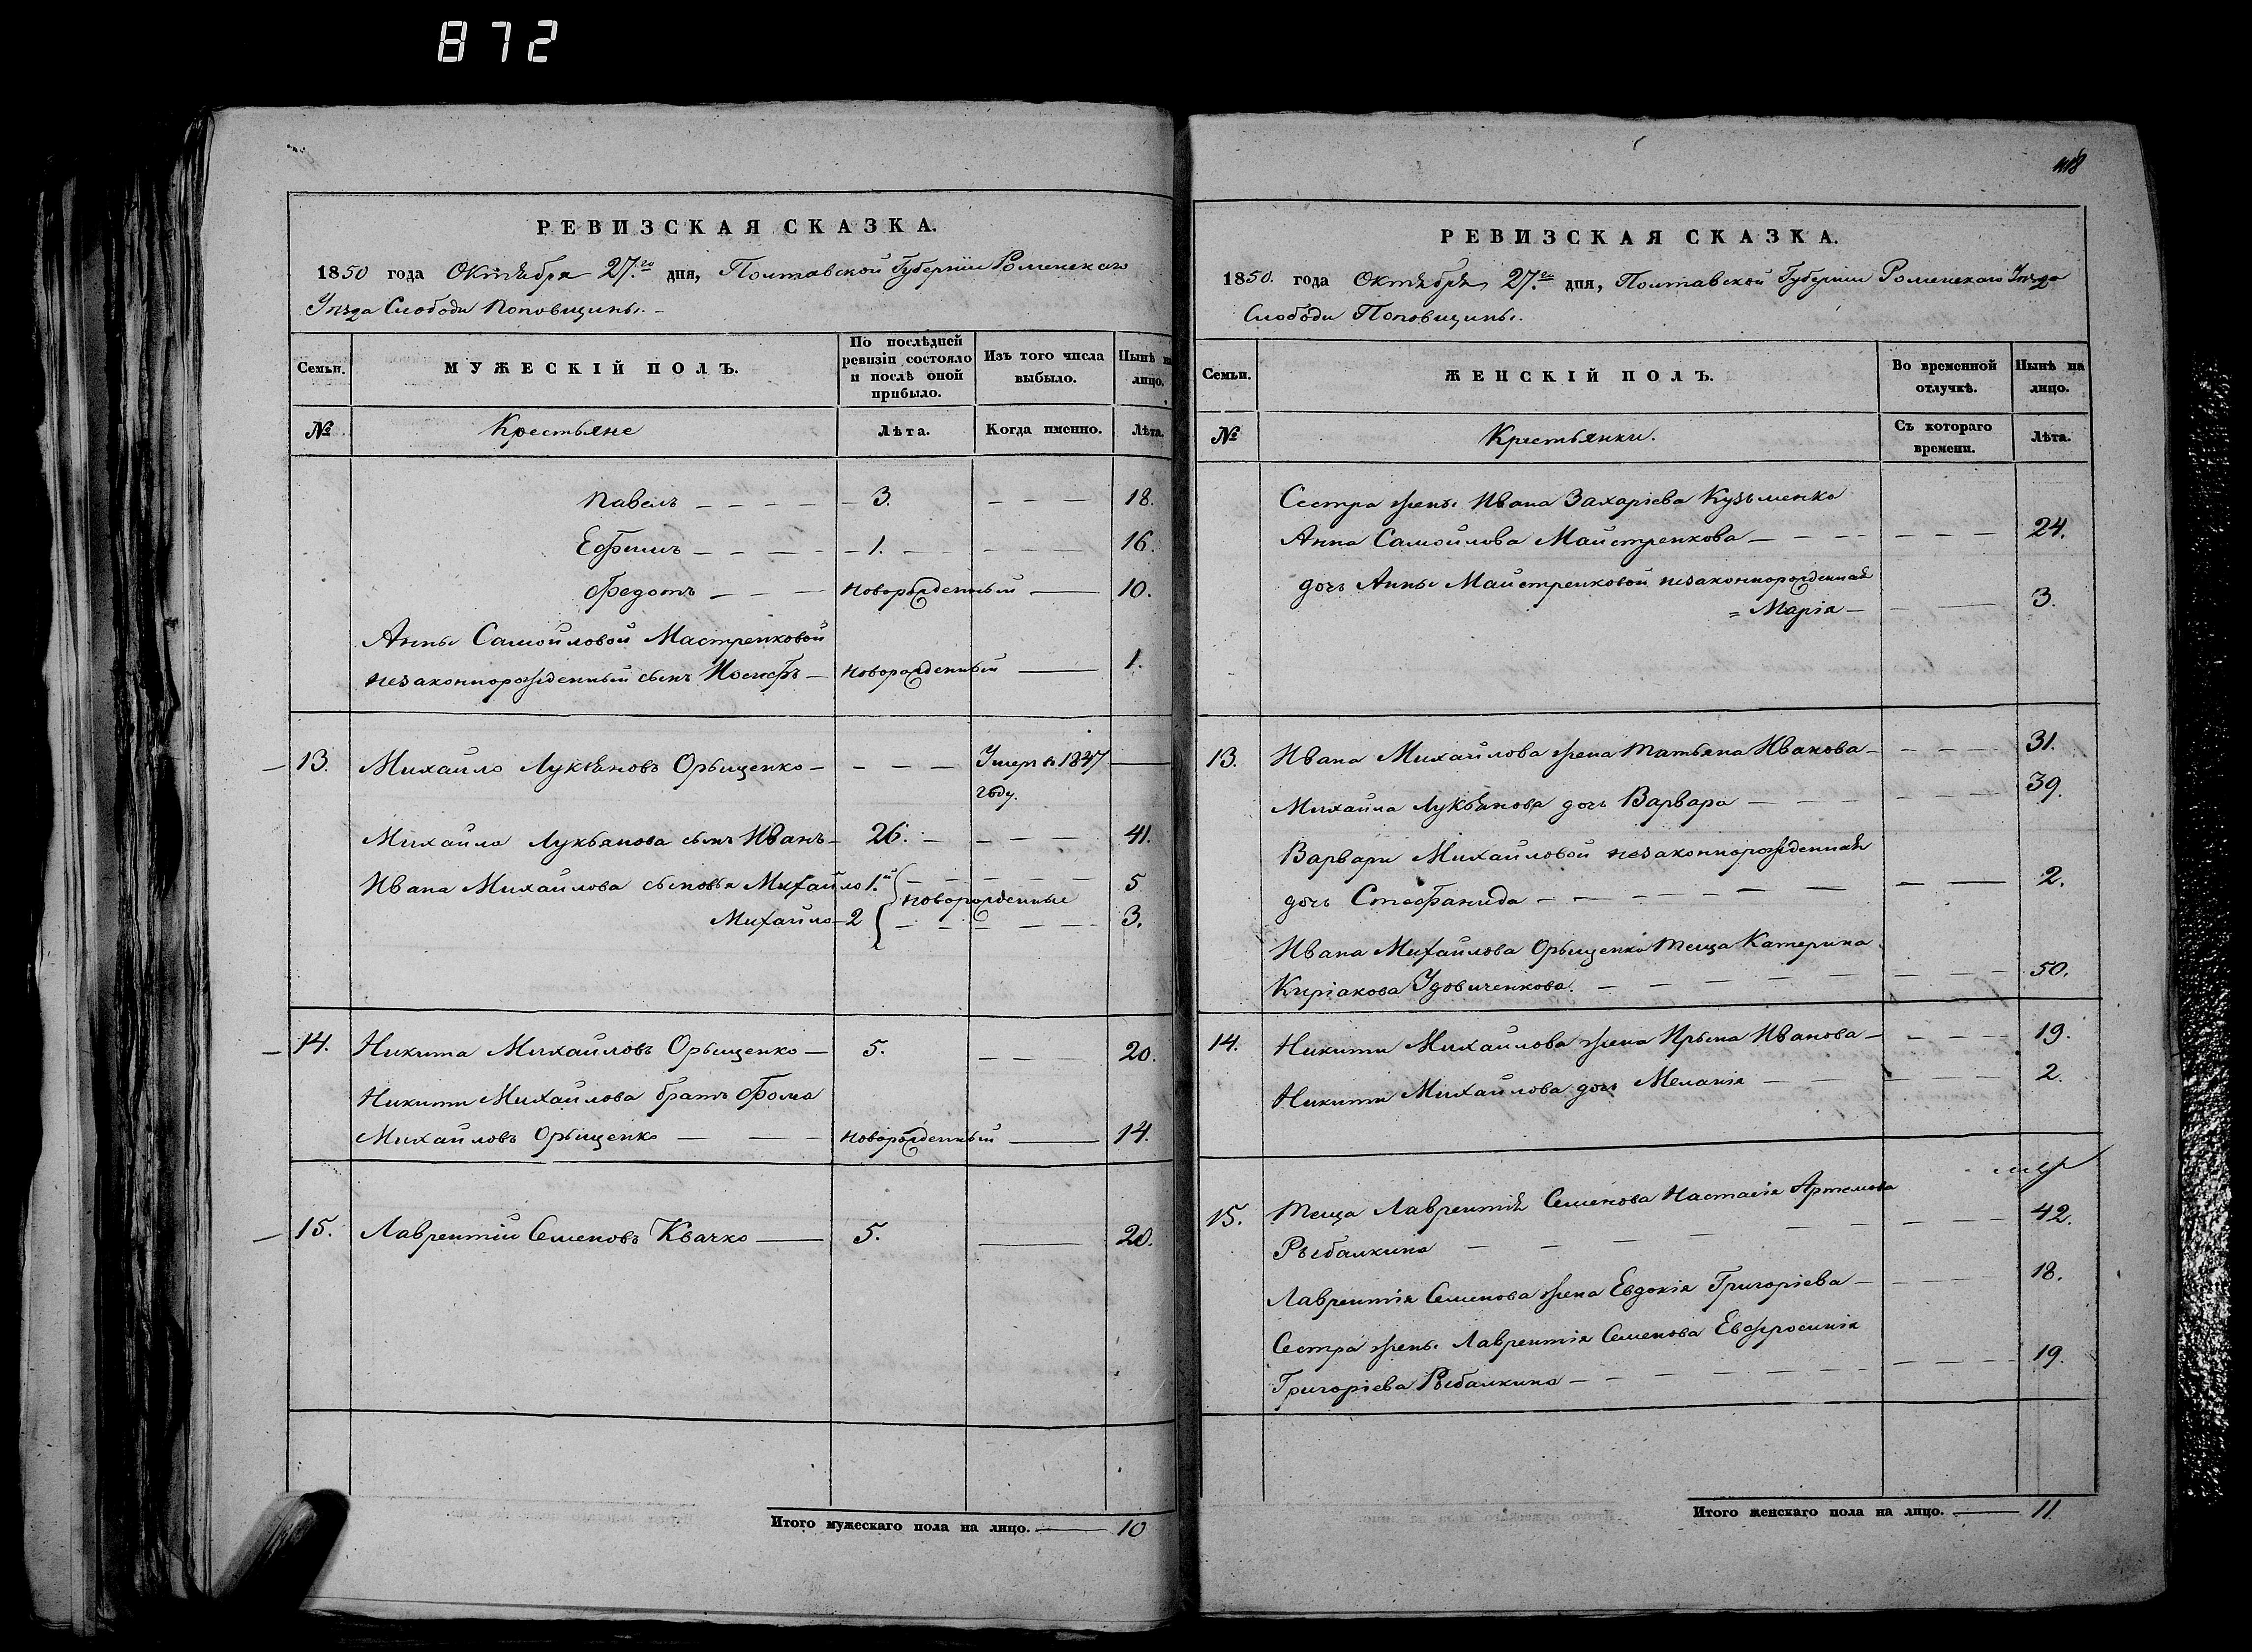 872
РЕВИЗСКАЯ СКАЗКА.
1850 года Октября 27.го дня, Полтавской Губерніи Роменскаго
Уѣзда Слободи Поповщины.
Семьи.
МУЖЕСКІЙ ПОЛЪ.
По послѣдней ревизіи состояло и послѣ оной прибыло.
Изъ того числа выбыло.
Нынѣ на лицо.
№ Крестьяне Лѣта. Когда именно. Лѣта.
Павелъ – 3. – 18.
Ефимъ – 1. – 16.
Федотъ – новорожденный – 10.
Анны Самойловой Мастренковой
незаконнорожденный сынъ Иосифъ – новорожденный – 1.
13. Михайло Лукьяновъ Орыщенко – Умеръ в 1847
году.
Михайла Лукьянова сынъ Иванъ – 26. – 41.
Ивана Михайлова сыновья Михайло 1.й – 5
новорожденные
Михайло – 2 – 3.
14. Никита Михайловъ Орыщенко – 5. – 20.
Никити Михайлова братъ Фома
Михайловъ Орыщенко – новорожденный – 14.
15. Лаврентій Семеновъ Квачко – 5. – 20.
Итого мужескаго пола на лицо. – 10
418
РЕВИЗСКАЯ СКАЗКА.
1850. года Октября 27.го дня, Полтавской Губерніи Роменскаго Уѣзда
Слободи Поповщины.
Семьи.
ЖЕНСКІЙ ПОЛЪ.
Во временной отлучкѣ.
Нынѣ на лицо.
№ Крестьянки. Съ котораго времени. Лѣта.
Сестра жены Ивана Захаріева Кузьменка
Анна Самойлова Майстренкова – 24.
дочь Анны Майстренковой незаконнорожденная
= Марія – 3.
13. Ивана Михайлова жена Татьяна Иванова – 31.
Михайла Лукьянова дочь Варвара – 39.
Варвари Михайловой незаконнорожденная
дочь Стефанида – 2.
Ивана Михайлова Орыщенка теща Катерина
Киріакова Удовиченкова. – 50.
14. Никити Михайлова жена Ирына Иванова – 19.
Никити Михайлова дочь Меланія – 2.
15. Теща Лаврентія Семенова Настасія Артемова
Рыбалкина – 42.
Лаврентія Семенова жена Евдокія Григоріева – 18.
Сестра жены Лаврентія Семенова Евфросинія
Григоріева Рыбалкина – 19.
Итого женскаго пола на лицо. – 11.